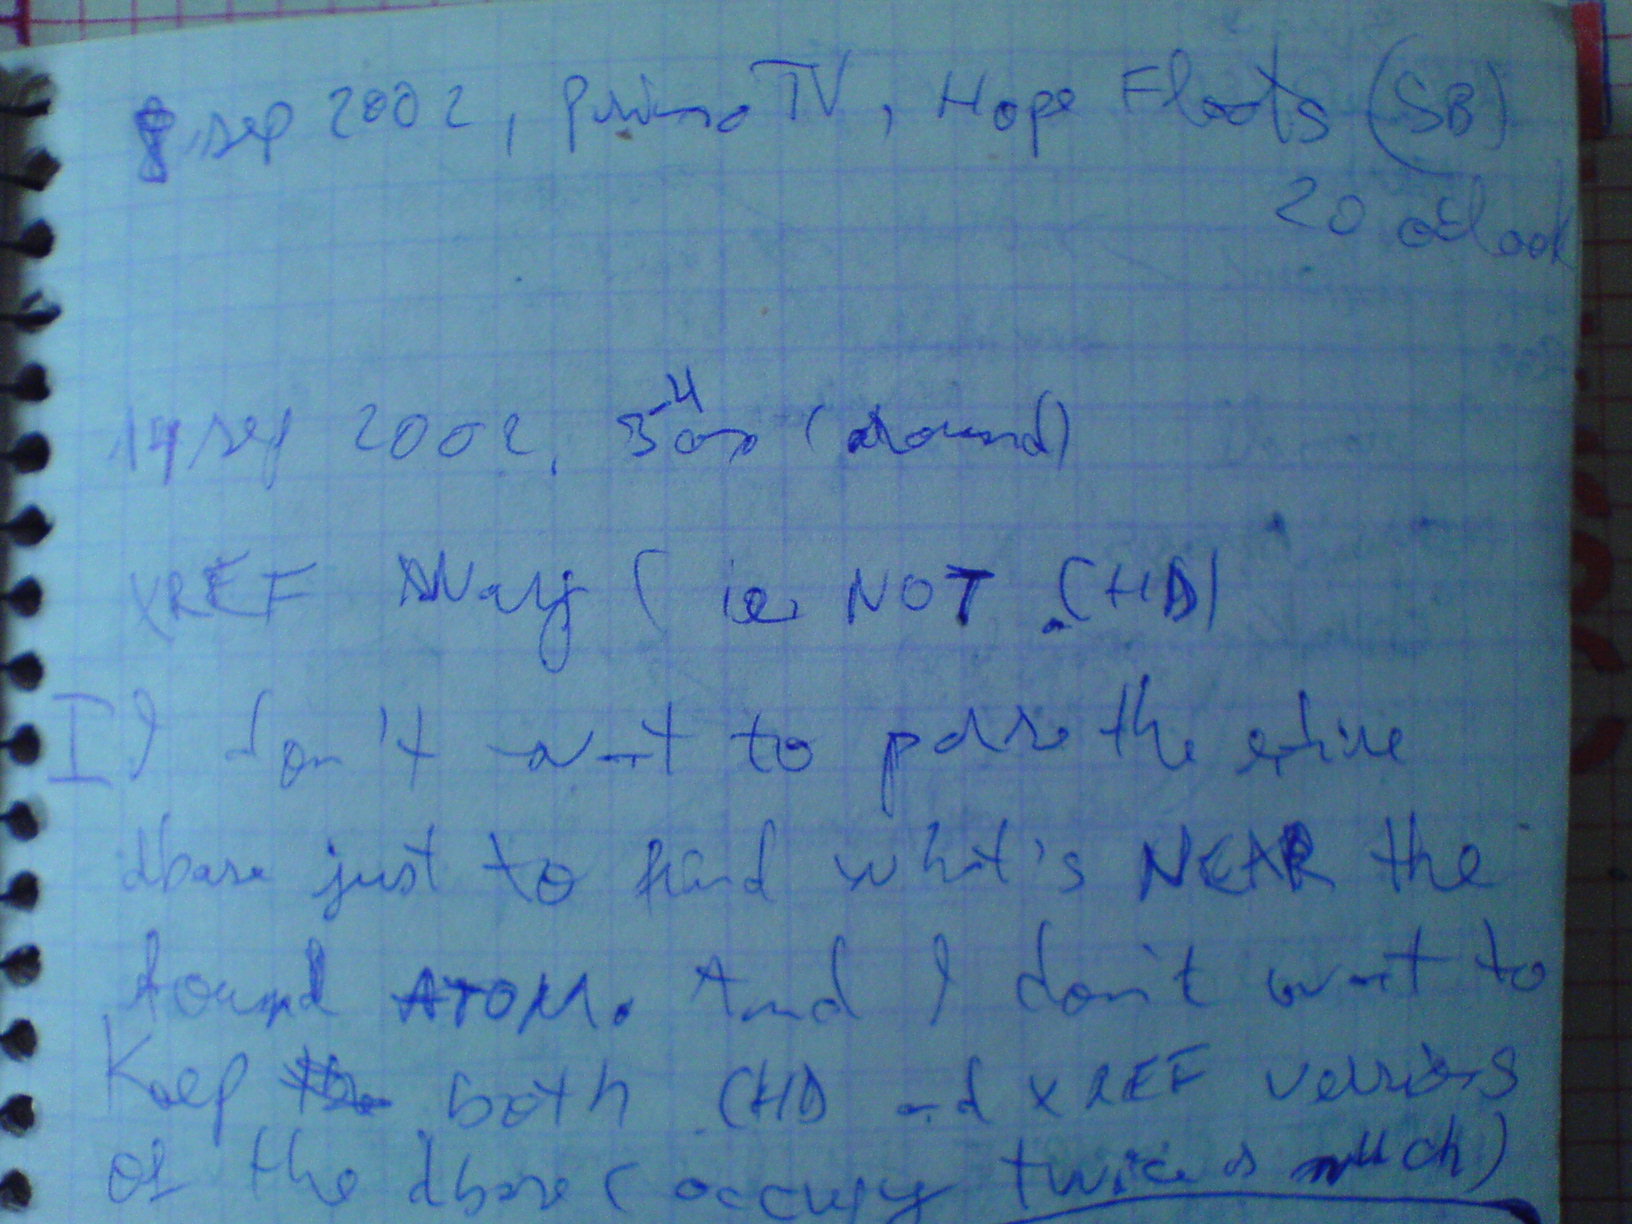 8 sep 2002, Prima TV, Hope Floats (SB)
20 o'clock
14 sep 2002, 3-4 (around)
XREF Way (ie NOT CHD)
I I don't want to parse the entire
dbase just to find what's NEAR the
found ATOM. And I don't want to
Keep both CHD and XREF versions
of the dbase (occupy twice as much)